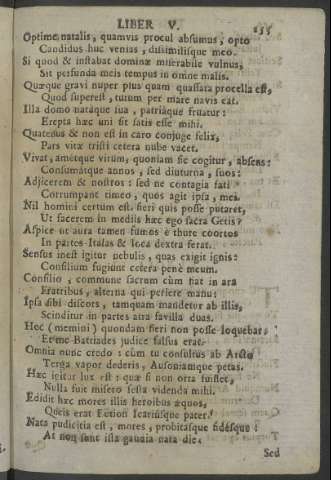 LIBER V. 135
Optime natalis, quamvis procul absumus, opto
Candidus huc venias, dissimilisque meo.
Si quod & instabat dominæ miserabile vulnus,
Sit perfunda meis tempus in omne malis.
Quæque gravi nuper plus quam quassata procella est,
Quod superest, tutum per mare navis eat.
Illa domo natáque sua, patriáque fruatur:
Erepta hæc uni sit satis esse mihi.
Quatenus & non est in caro conjuge felix,
Pars vitæ tristi cetera nube vacet.
Vivat, amétque virum, quoniam sic cogitur, absens:
Consumátque annos, sed diuturna, suos:
Adjicerem & nostros: sed ne contagia fati
Corrumpant timeo, quos agit ipsa, mei.
Nil homini certum est. fieri quis posse putaret,
Ut facerem in mediis hæc ego sacra Getis?
Aspice ut aura tamen fumos è thure coortos
In partes Italas & loca dextra ferat.
Sensus inest igitur nebulis, quas exigit ignis:
Consilium fugiunt cetera penè meum.
Consilio, commune sacrum cùm fiat in ara
Fratribus, alterna qui periere manu:
Ipsa sibi discors, tamquam mandetur ab illis,
Scinditur in partes atra favilla duas.
Hoc (memini) quondam fieri non posse loquebar,
Et me Battiades judice falsus erat.
Omnia nunc credo: cùm tu consultus ab Arcto
Terga vapor dederis, Ausoniamque petas.
Hæc igitur lux est: quæ si non orta fuisset,
Nulla fuit misero festa videnda mihi.
Edidit hæc mores illis heroibus æquos,
Queis erat Eetion Icariusque pater.
Nata pudicitia est, mores, probitasque fidésque:
At non sunt ista gaudia nata die.
Sed